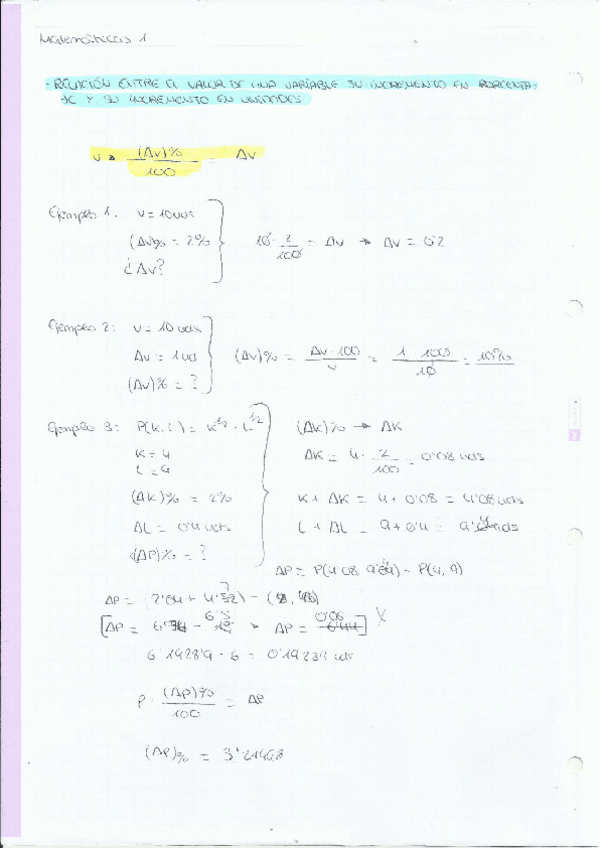 Matemáticas 1
- RELACIÓN ENTRE EL VALOR DE UNA VARIABLE SU INCREMENTO EN PORCENTA-
JE Y SU INCREMENTO EN UNIDADES
v · (Δv)% / 100 = Δv
Ejemplo 1: v = 10 uds
(Δv)% = 2%
¿Δv?
10 · 2 / 100 = Δv → Δv = 0'2
Ejemplo 2: v = 10 uds
Δv = 1 ud
(Δv)% = ?
(Δv)% = Δv · 100 / v = 1 · 100 / 10 = 10%
Ejemplo 3: P(K, L) = K^1/2 · L^1/2
K = 4
L = 9
(ΔK)% = 2%
ΔL = 0'4 uds
(ΔP)% = ?
(ΔK)% → ΔK
ΔK = 4 · 2 / 100 = 0'08 uds
K + ΔK = 4 + 0'08 = 4'08 uds
L + ΔL = 9 + 0'4 = 9'4 uds
ΔP = P(4'08, 9'4) - P(4, 9)
ΔP =
[ΔP = ΔP = ] X
6'19289 - 6 = 0'19289 uds
P · (ΔP)% / 100 = ΔP
(ΔP)% =